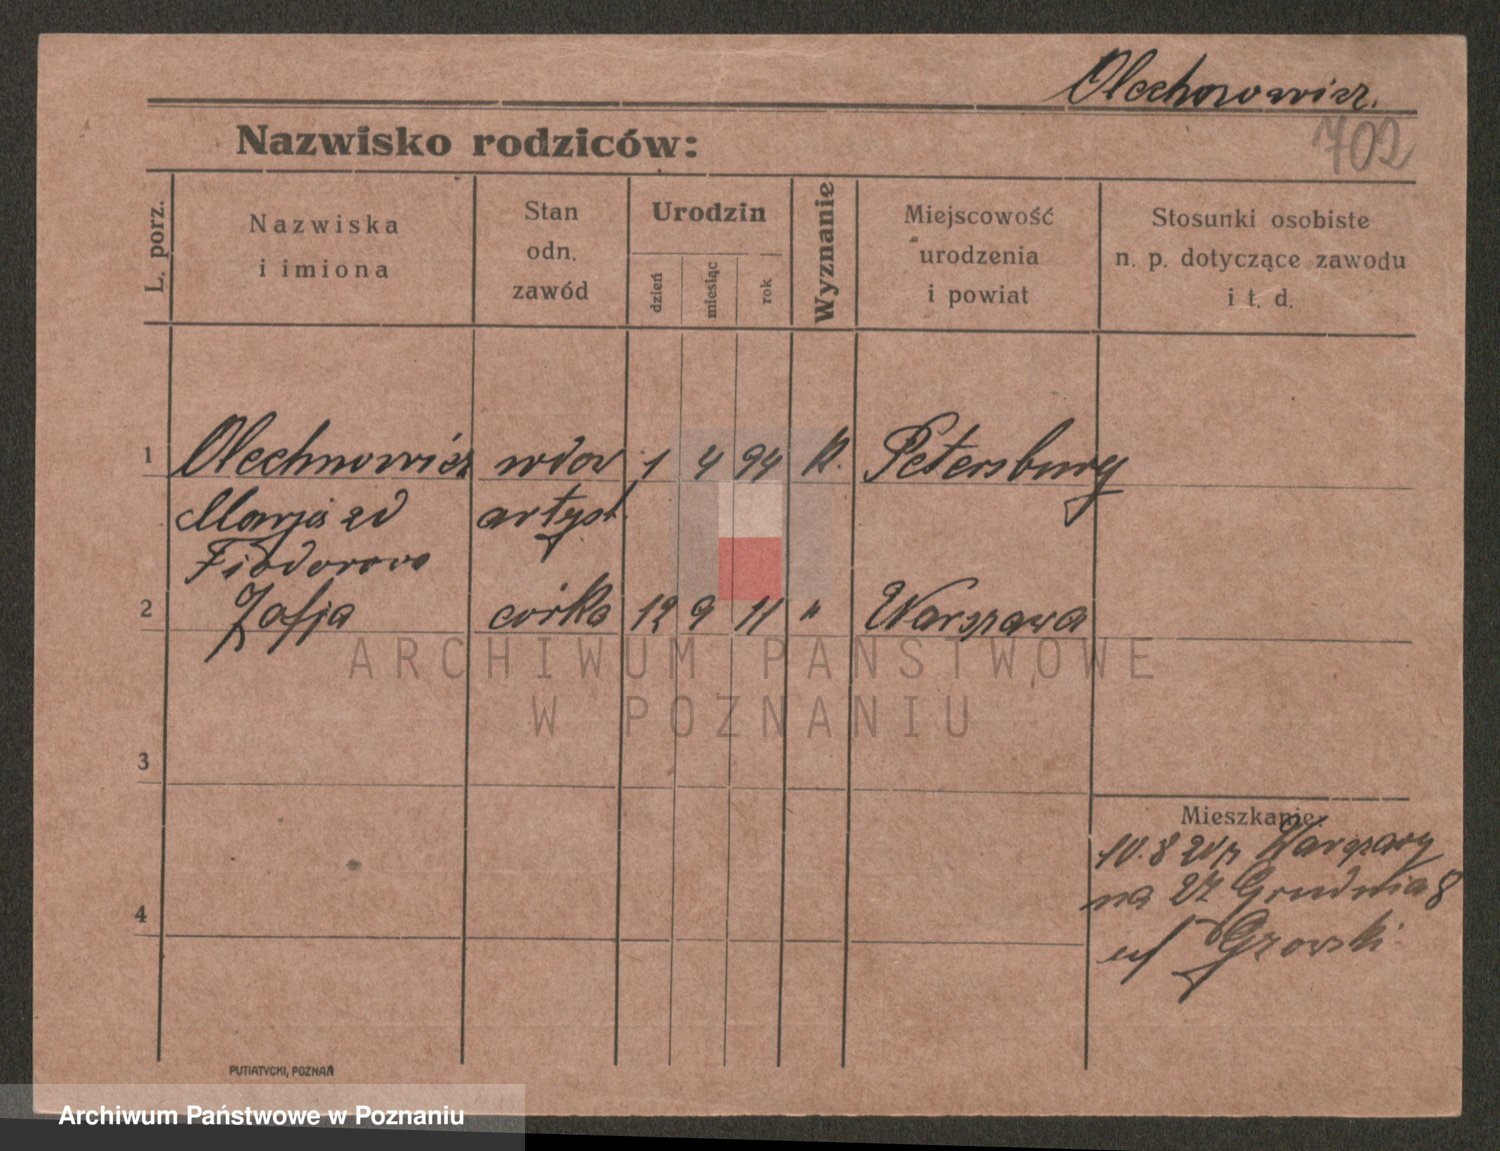 Olechnowicz.
702
Nazwisko rodziców:
L. porz.
Nazwiska
i imiona
Stan
odn.
zawód
Urodzin
dzień
miesiąc
rok
Wyznanie
Miejscowość
urodzenia
i powiat
Stosunki osobiste
n. p. dotyczące zawodu
i t. d.
1 Olechnowicz wdov 1 4 94 k. Petersburg
Marja zd artyst.
Fiodorovo
2 Zofja córka 12 9 11 " Warszawa
ARCHIWUM PAŃSTWOWE
W POZNANIU
3
Mieszkanie:
10.8 20 z Warszawy
na 27 Grudnia 8
u/ Gzovski
4
PUTIATYCKI, POZNAŃ
Archiwum Państwowe w Poznaniu